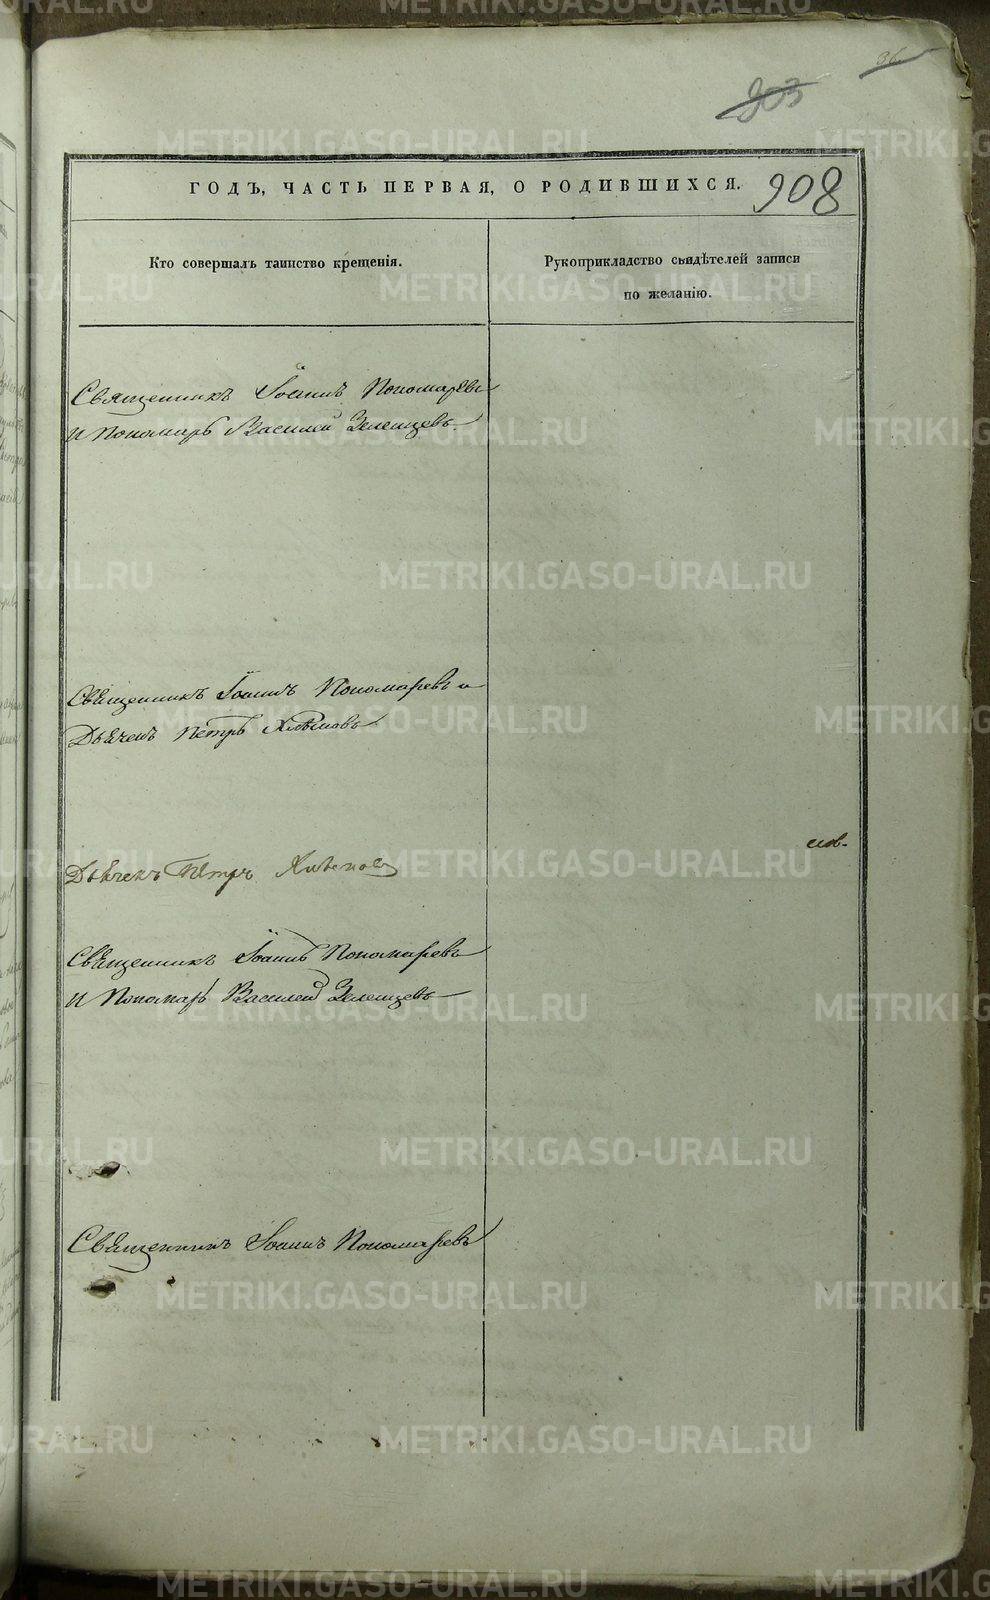 903
908
ГОДЪ, ЧАСТЬ ПЕРВАЯ, О РОДИВШИХСЯ.
Кто совершалъ таинство крещенія.
Рукоприкладство свидѣтелей записи
по желанію.
Священникъ Іоаннъ Пономаревъ
и Пономарь Василей Зеленцевъ
Священникъ Іоаннъ Пономаревъ и
Дьячекъ Петръ Хлѣповъ
Дьячекъ Петръ
Священникъ Іоаннъ Пономаревъ
и Пономарь Василей Зеленцевъ
Священникъ Іоаннъ Пономаревъ
METRIKI.GASO-URAL.RU